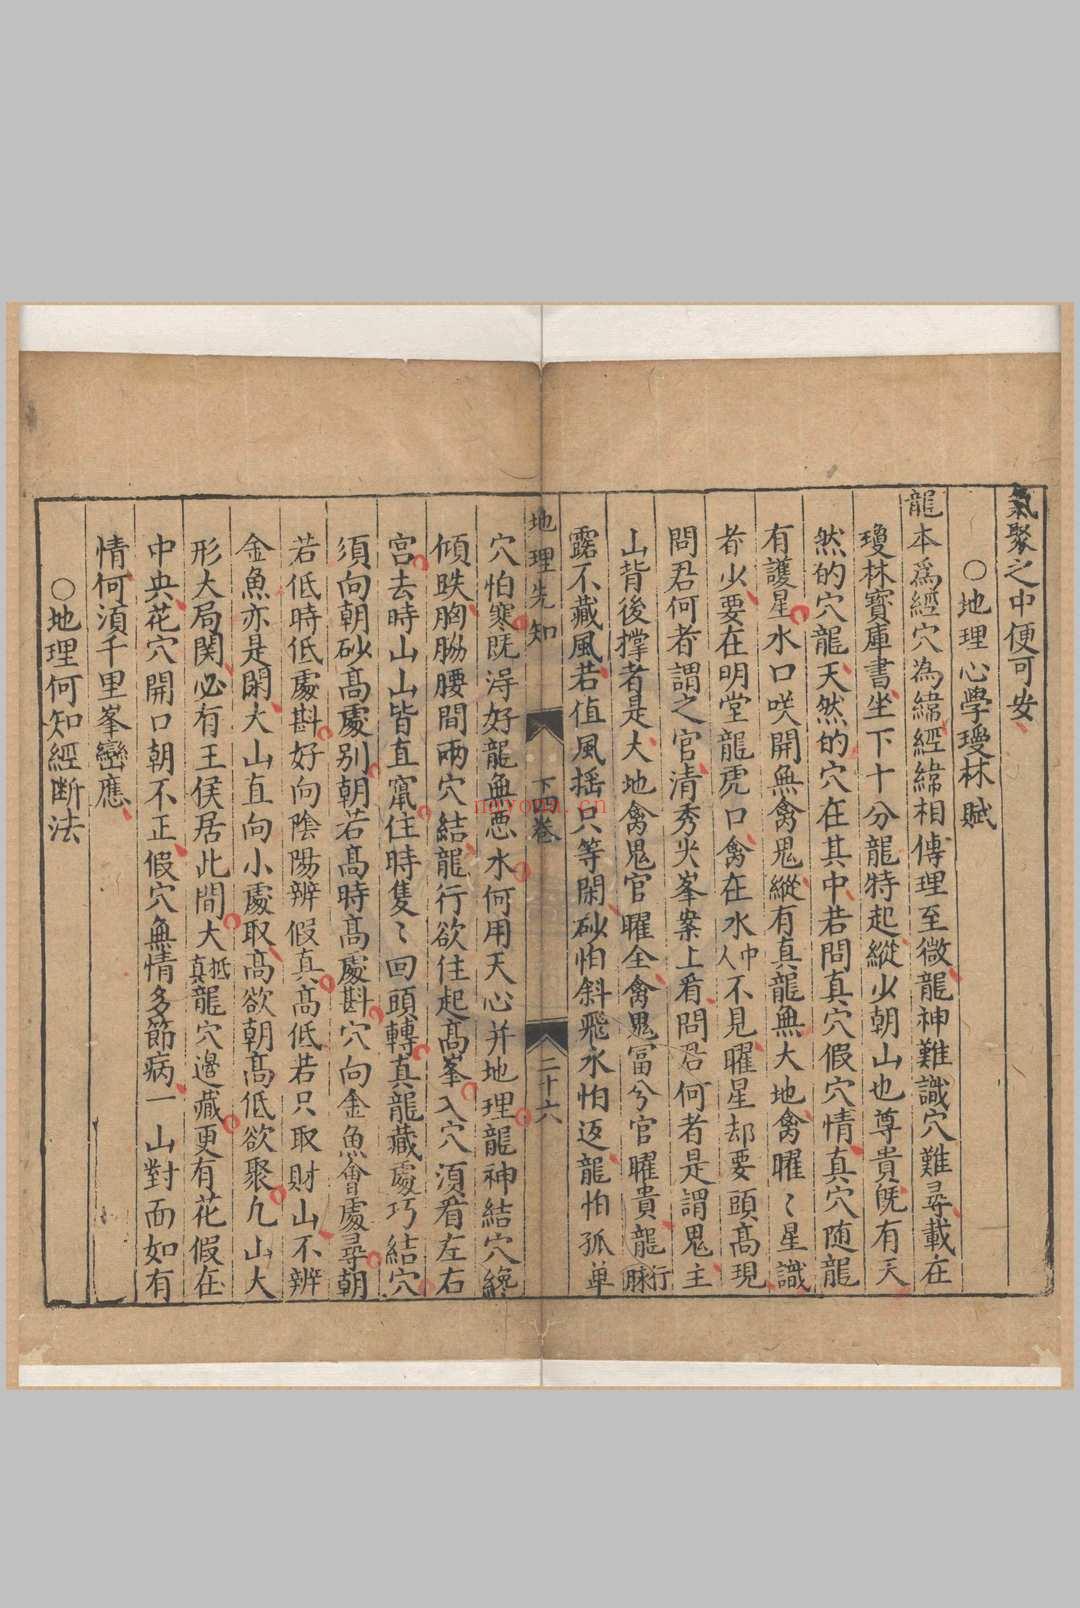 氣聚之中便可安
○地理心學瓊林賦
龍本爲經穴為緯經緯相傳理至微龍神難識穴難尋載在
瓊林寶庫書坐下十分龍特起縱少朝山也尊貴旣有天
然的穴龍天然的穴在其中若問真穴假穴情真穴随龍
有護星水口咲開無禽鬼縱有真龍無大地禽曜〻星識
者少要在明堂龍虎口禽在水中人不見曜星却要頭髙現
問君何者謂之官清秀尖峯案上看問君何者是謂鬼主
山背後撑者是大地禽鬼官曜全禽鬼冨兮官曜貴龍行脉
露不藏風若值風揺只等閑砂怕斜飛水怕返龍怕孤單
地理先知
下四卷
二十六
穴怕寒既淂好龍無悪水何用天心并地理龍神結穴纔
傾跌胸脇腰間兩穴結龍行欲住起髙峯入穴湏看左右
宫去時山山皆直竄住時隻〻回頭轉真龍藏處巧結穴
須向朝砂髙處别朝若髙時髙處斟穴向金魚會處尋朝
若低時低處斟好向陰陽辨假真髙低若只取財山不辨
金魚亦是閑大山直向小處取髙欲朝髙低欲聚凢山大
形大局関必有王侯居此間大抵真龍穴邊藏更有花假在
中央花穴開口朝不正假穴無情多節病一山對面如有
情何湏千里峯巒應
○地理何知經断法
noyona.cn